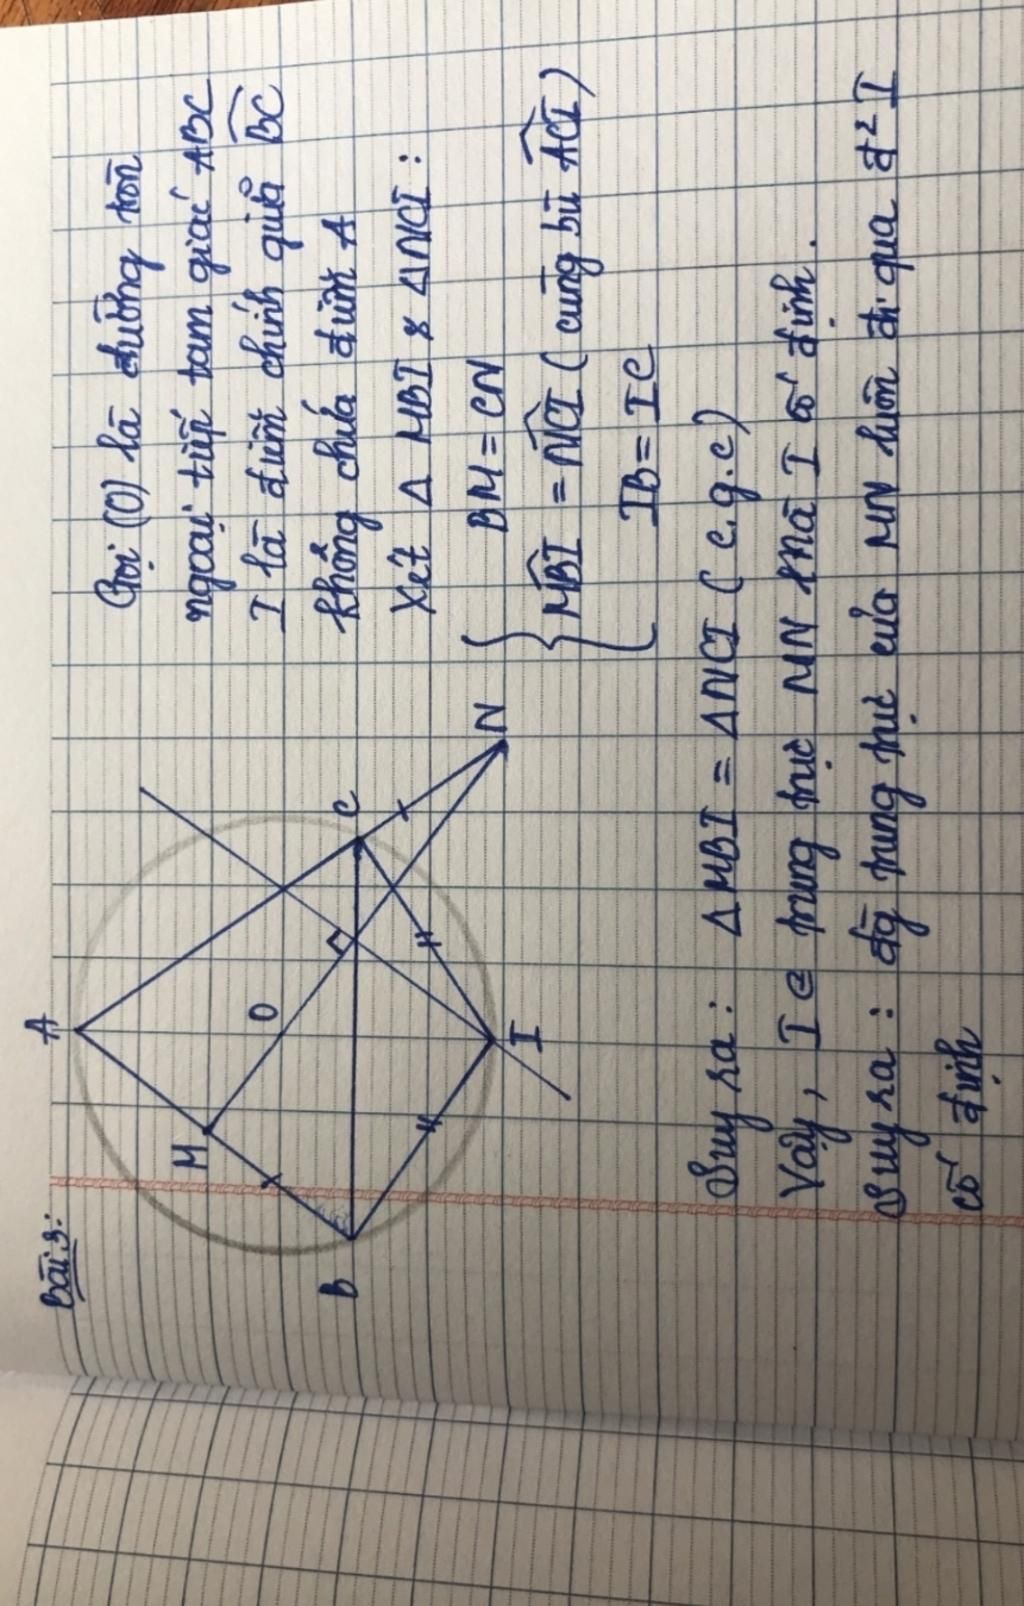 bài 3:
A
M
O
B
C
N
I
Gọi (O) là đường tròn
ngoại tiếp tam giác ABC
I là điểm chính giữa BC
không chứa điểm A
Xét Δ MBI & ΔNCI:
BM = CN
MBI = NCI (cùng bù ACI)
IB = IC
Suy ra: Δ MBI = ΔNCI (c.g.c)
Vậy, I ∈ trung trực MN mà I cố định.
Suy ra: đg trung trực của MN luôn đi qua đ² I
cố định